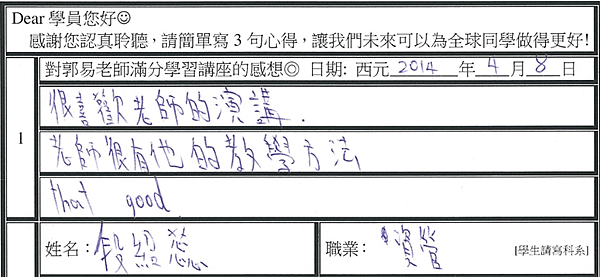 Dear 學員您好☺
感謝您認真聆聽，請簡單寫 3 句心得，讓我們未來可以為全球同學做得更好!
對郭易老師滿分學習講座的感想◎ 日期: 西元 2014 年 4 月 8 日
1
很喜歡老師的演講.
老師很有他的教學方法
that good
姓名： 段紹慈
職業： 資管 [學生請寫科系]